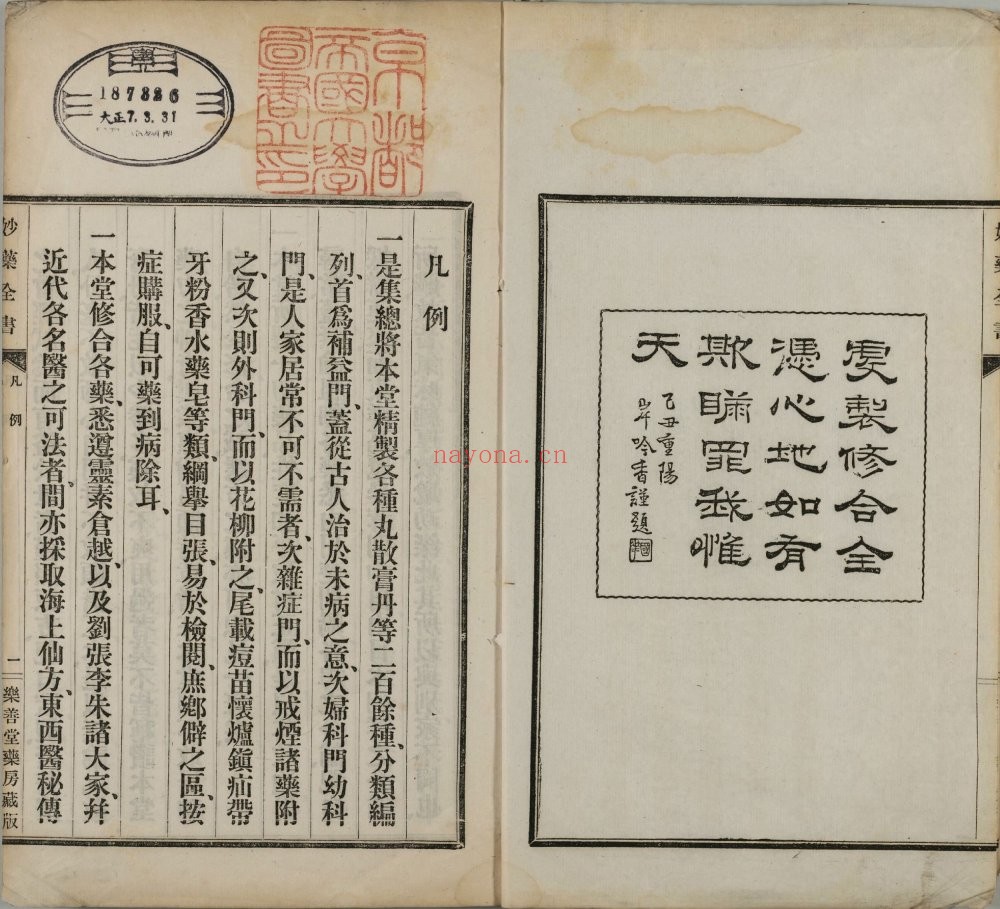 虔製修合全
憑心地如有
欺瞞罪我惟
天
乙丑重陽
吟香謹題
京都
帝國大學
圖書之印
187326
大正7.3.31
凡例
一是集總將本堂精製各種丸散膏丹等二百餘種、分類編
列、首爲補益門、蓋從古人治於未病之意、次婦科門幼科
門、是人家居常不可不需者、次雜症門、而以戒煙諸藥附
之、又次則外科門、而以花柳附之、尾載痘苗懷爐鎭疝帶
牙粉香水藥皂等類、綱擧目張、易於檢閱、庶鄕僻之區、按
症購服、自可藥到病除耳、
一本堂修合各藥、悉遵靈素倉越、以及劉張李朱諸大家、幷
近代各名醫之可法者、間亦採取海上仙方、東西醫秘傳
妙藥全書
凡例
二
樂善堂藥房藏版
nayona.cn